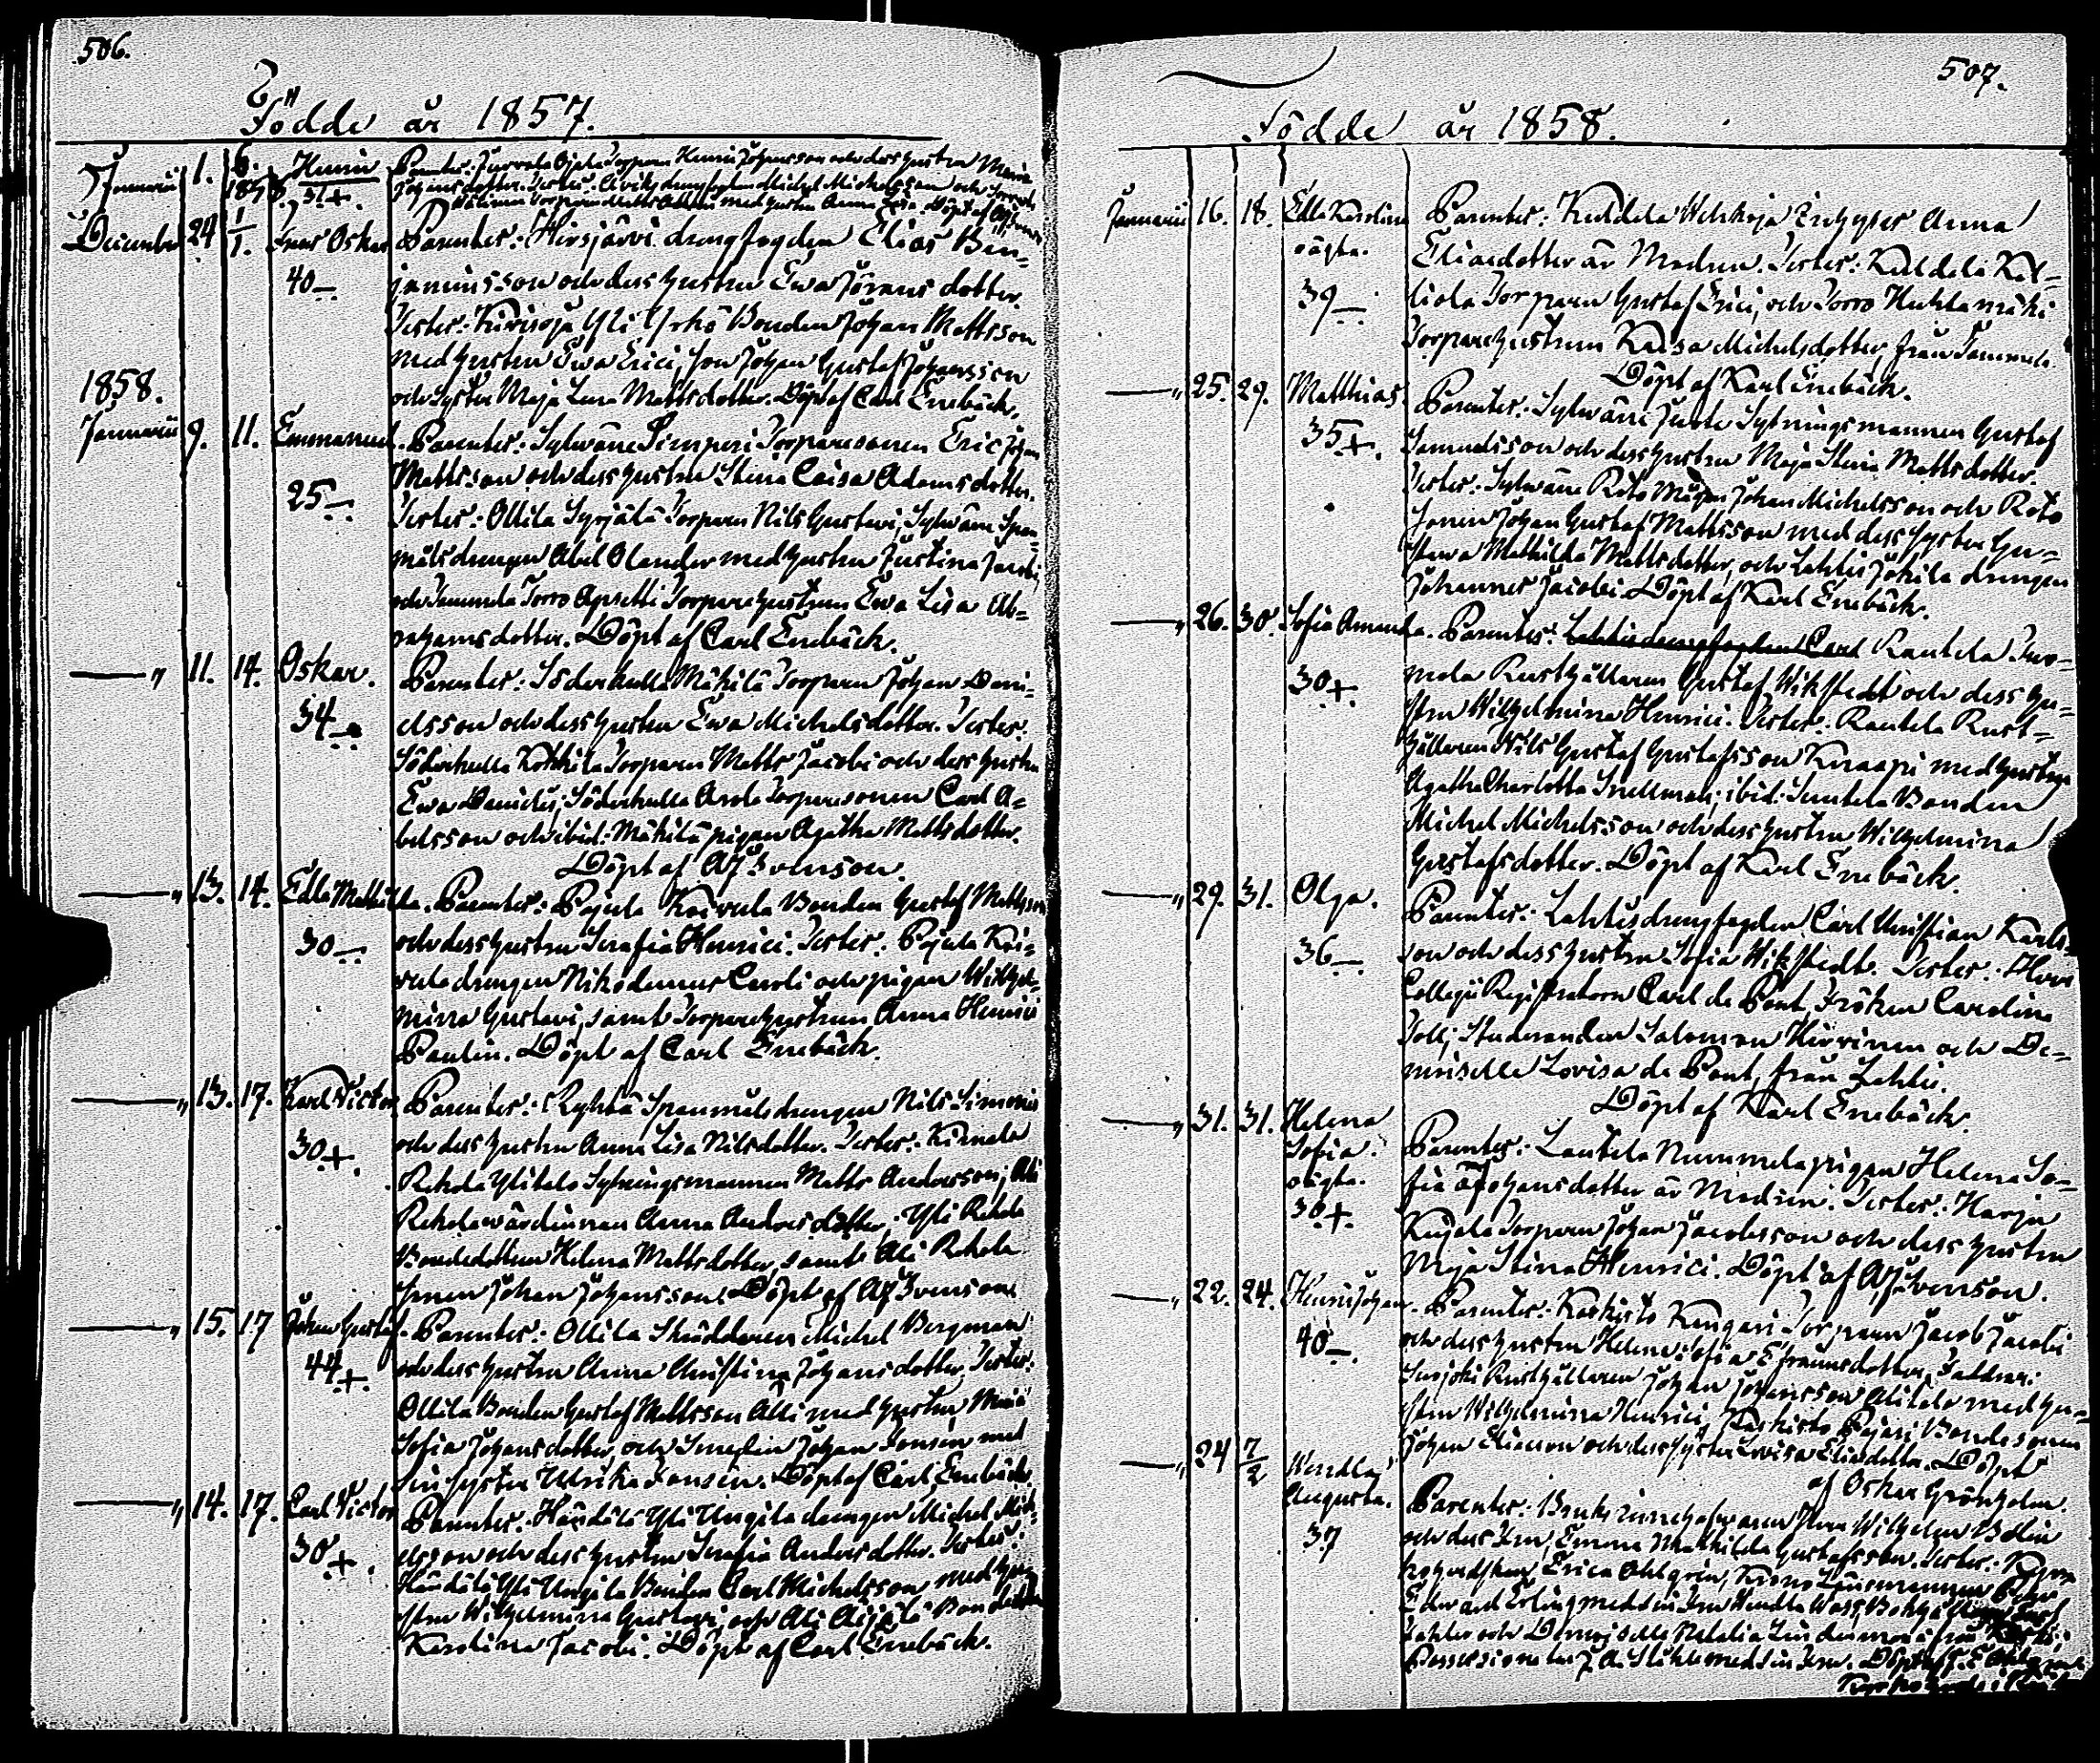 506.
Födde år 1857.
Januarii 1. 6. Henric Parenter: Torparen Henric Johansson och dess hustru Maria
1857
31+. Johansdotter. Testes: drängfogden Michel Michelsson och
med hustru Anna Döpt af
December 24 1/1. Frans Oskar Parenter: Hirsjärvi drängfogden Elias Ben-
40— jaminsson och dess hustru Ewa Göransdotter.
Testes: Kirioja Yli Yrkö Bonden Johan Mattsson
med hustru Ewa Erici, son Johan Gustaf Johansson
1858.
och Syster Maja Lena Mattsdotter. Döpt af Carl Enebäck.
Januarii 9. 11. Emmanuel. Parenter: Sylwäne Simperi Torparesonen Eric Johan
Mattsson och dess hustru Stina Caisa Adamsdotter.
25— Testes: Ollila Syrjälä Torparen Nils Gustavi, Sylwäne Span-
målsdrängen Abel Olander med hustru Justina Jacobi,
och Tammela Torro Torparehustrun Ewa Lisa Ab-
rahamsdotter. Döpt af Carl Enebäck.
—„ 11. 14. Oskar. Parenter: Söderkulla Mäkilä Torparen Johan Dani-
34— elsson och dess hustru Ewa Michelsdotter. Testes:
Söderkulla Kokkila Torparen Matts Jacobi och dess hustru
Ewa Danielis; Söderkulla Arola Torparesonen Carl A-
belsson och ibid. Mäkilä pigan Agatha Mattsdotter.
Döpt af AJ Svenson.
—„ 13. 14. Edla Mathilda. Parenter: Pajula Koivula Bonden Gustaf Mattsson
30— och dess hustru Serafia Henrici. Testes: Pajula Koi-
vula drängen Nikodemus Caroli och pigan Wilhel-
mina Gustavi, samt Torparehustrun Anna Henrici
Paulin. Döpt af Carl Enebäck.
—„ 13. 17. Karl Victor Parenter: Ryhtä Spanmålsdrängen Nils Simonis
30+. och dess hustru Anna Lisa Nilsdotter. Testes: Kimala
Rekola Ylitalo Sytningsmannen Matts Andersson; Ali
Rekola wärdinnan Anna Andersdotter, Yli Rekola
Bondedottren Helena Mattsdotter, samt Ali Rekola
Sonen Johan Johansson. Döpt af AJ Svenson.
—„ 15. 17 Johan Gustaf. Parenter: Ollila Skräddaren Michel Bergman
44+. och dess hustru Anna Christina Johansdotter. Testes:
Ollila Bonden Gustaf Mattsson Alli med hustru Maria
Sofia Johansdotter, och Smeden Johan Jansén med
sin syster Ulrika Jansén. Döpt af Carl Enebäck.
—„ 14. 17. Carl Victor Parenter: Häntälä Yli Ungila drängen Michel Mich-
30+. elsson och dess hustru Serafia Andersdotter. Testes:
Häntälä Yli Ungila Bonden Carl Michelsson med hu-
stru Wilhelmina Gustavi, och Ali Äijälä Bondedotter
Karolina Jacobi. Döpt af Carl Enebäck.
507.
Födde år 1858.
Januarii 16. 18. Edla Karolina Parenter: Kuldela Inhyses Anna
oägta. Eliaedotter är Modren. Testes: Kuldela Kal-
39— liola Torparen Gustaf Erici, och Torro Huhtamäki
Torparehustrun Kaisa Michelsdotter, från Tammela.
Döpt af Karl Enebäck.
—„ 25. 29. Matthias. Parenter: Sylwäne Juste Sytningsmannen Gustaf
35+. Samuelsson och dess hustru Maja Stina Mattsdotter.
Testes: Sylwäne Roto Mågen Johan Michelsson och Roto
Sonen Johan Gustaf Mattsson med dess syster Gu-
stava Mathilda Mattsdotter, och Lahtis Jokila drängen
Johannes Jacobi. Döpt af Karl Enebäck.
—„ 26. 30. Sofia Amanda. Parenter: Lahtis drängfogden Carl Rautela
30+. Rusthållaren Gustaf Wikstedt och dess hu-
stru Wilhelmina Henrici. Testes: Rautela Rust-
hållaren Nils Gustaf Gustafsson Knaapi med hustru
Agatha Charlotta Snellman; ibid. Bonden
Michel Michelsson och dess hustru Wilhelmina
Gustafsdotter. Döpt af Karl Enebäck.
—„ 29. 31. Olga. Parenter: Lahtis drängfogden Carl Christian Karls-
36— son och dess hustru Sofia Wikstedt. Testes: Herr
Collegii Registratorn Carl de Pont, Fröken Carolina
Toll; Studeranden Salomon Hirvinen och De-
moiselle Lovisa de Pont, från Lahtis.
Döpt af Karl Enebäck.
—„ 31. 31. Helena
Sofia. Parenter: Lautela Nummela pigan Helena So-
oägta. fia Johansdotter är Modren. Testes: Harju
30+. Kujala Torparen Johan Jacobsson och dess hustru
Maja Stina Henrici. Döpt af AJ Svenson.
—„ 22. 24. Henric Johan. Parenter: Koskisto Kangari Torparen Jacob Jacobi
40— och dess hustru Helena Sofia Efraimsdotter. Faddrar:
Rusthållaren Johan Johansson Alitalo med hu-
stru Wilhelmina Henrici, Koskisto Pajari Bondesonen
Johan Eliasson och dess syster Lovisa Eliaedotter. Döpt
af Oskar Grönholm.
—„ 24 7/2 Wendla
Augusta. Parenter: Bruksinnehafvaren Herr Wilhelm Bolin
37 och dess Fru, Emma Mathilda Gustafsson. Testes:
Erica Ahlgrén, Krono Länsmannen
Edward Erling med sin Fru Wendla Wass, Bokhållaren
och Demoiselle Natalia
Possessionaten J. A. med sin Fru. Döpt af